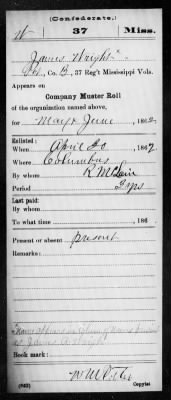 (Confederate.)
W 37 Miss.
James Wright
Co. B, 37 Reg't Mississippi Vols.
Appears on
Company Muster Roll
of the organization named above,
for May & June, 1862
Enlisted:
When April 20, 1862
Where Columbus
By whom R McLain
Period 3 yrs
Last paid:
By whom
To what time , 186
Present or absent present
Remarks:
Name appears in column of names
as James A Wright
Book mark:
(642) Copyist